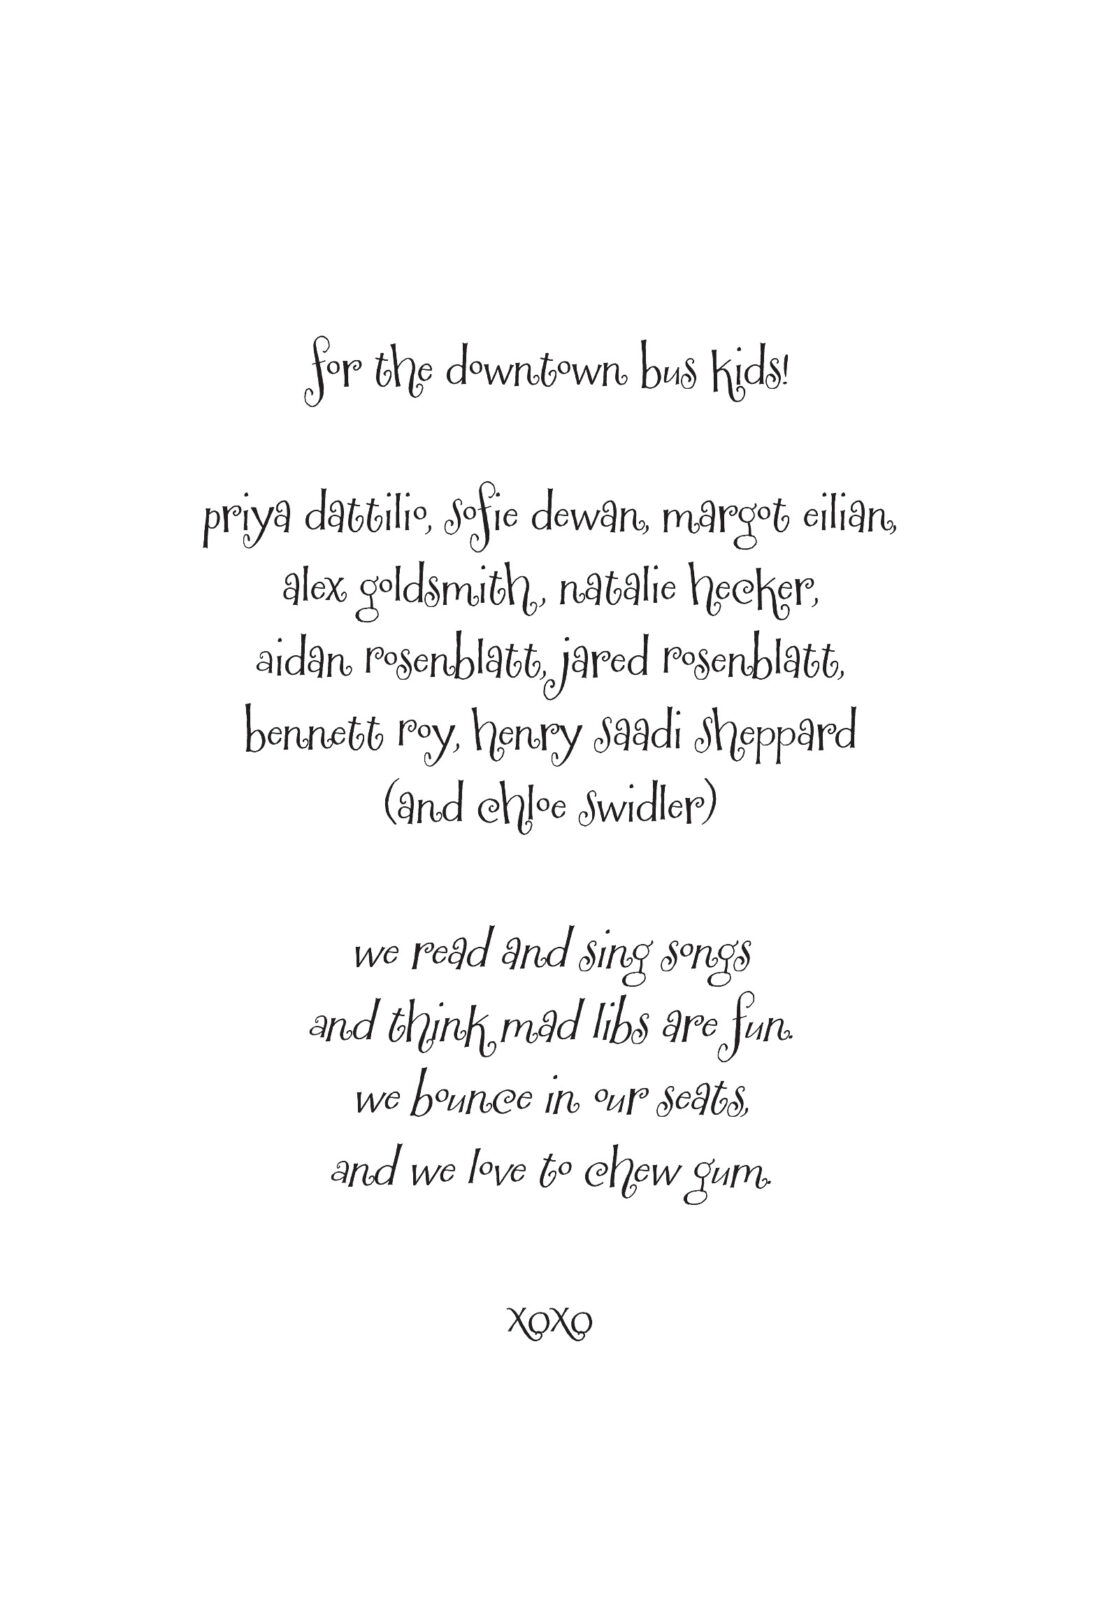 for the downtown bus kids!
priya dattilio, sofie dewan, margot eilian,
alex goldsmith, natalie hecker,
aidan rosenblatt, jared rosenblatt,
bennett roy, henry saadi sheppard
(and chloe swidler)
we read and sing songs
and think mad libs are fun.
we bounce in our seats,
and we love to chew gum.
xoxo